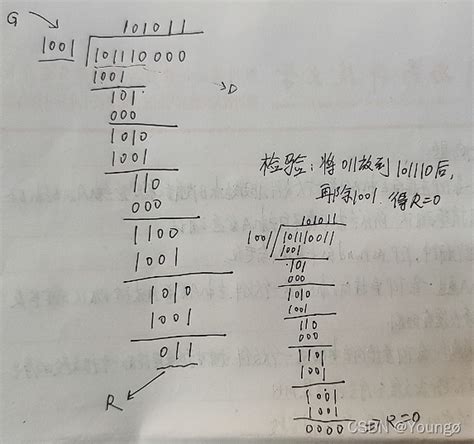 G
101011
1001 101110000
1001
101
D
000
1010
1001
110
000
1100
1001
1010
1001
011
R
检验:将011放到101110后,
再除1001 得R=0
101011
1001 101110011
1001
101
000
1010
1001
110
000
1101
1001
1001
1001
0000 ⇒ R=0
CSDN @Youngø